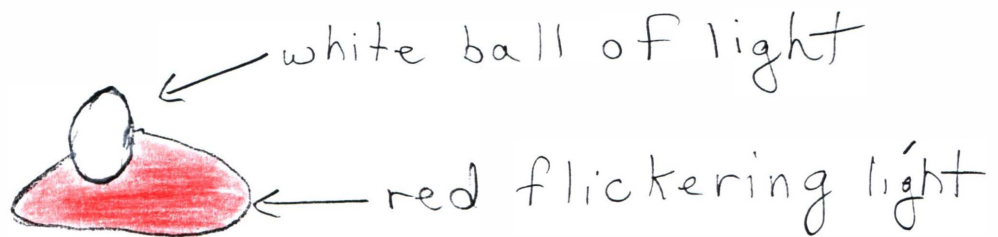 white ball of light
red flickering light